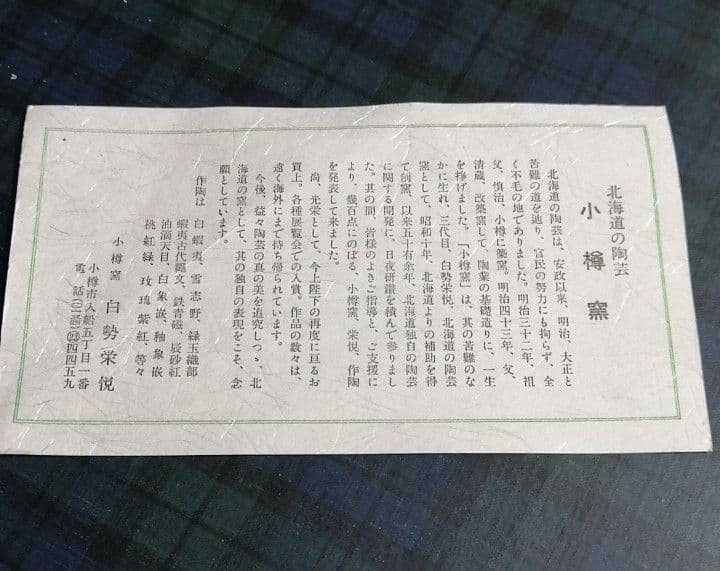 北海道の陶芸
小樽窯
北海道の陶芸は、安政以来、明治、大正と
苦難の道を辿り、官民の努力にも拘らず、全
く不毛の地でありました。明治三十二年、祖
父、慎治、小樽に築窯。明治四十三年、父、
清蔵、改築窯して、陶業の基礎造りに、一生
を捧げました。「小樽窯」は、其の苦難のな
かに生れ、三代目、白勢栄悦、北海道の陶芸
窯として、昭和十年、北海道よりの補助を得
て創窯、以来五十有余年、北海道独自の陶芸
に関する開発に、日夜研鑽を積んで参りまし
た。其の間、皆様のよきご指導と、ご支援に
より、幾百点にのぼる、小樽窯、栄悦、作陶
を発表して来ました。
尚、光栄として、今上陛下の再度に亘るお
買上。各種展覧会での入賞。作品の数々は、
遠く海外にまで持ち帰られています。
今後、益々陶芸の真の美を追究しつゝ、北
海道の窯として、其の独自の表現をこそ、念
願としています。
作陶は 白蝦夷、雪志野、緑玉織部
蝦夷古代縄文、鉄青磁、辰砂紅
油滴天目、白象嵌、釉象嵌
桃紅緑、玫瑰紫紅、等々
小樽窯 白勢栄悦
小樽市入船五丁目一番
電話 四四五九